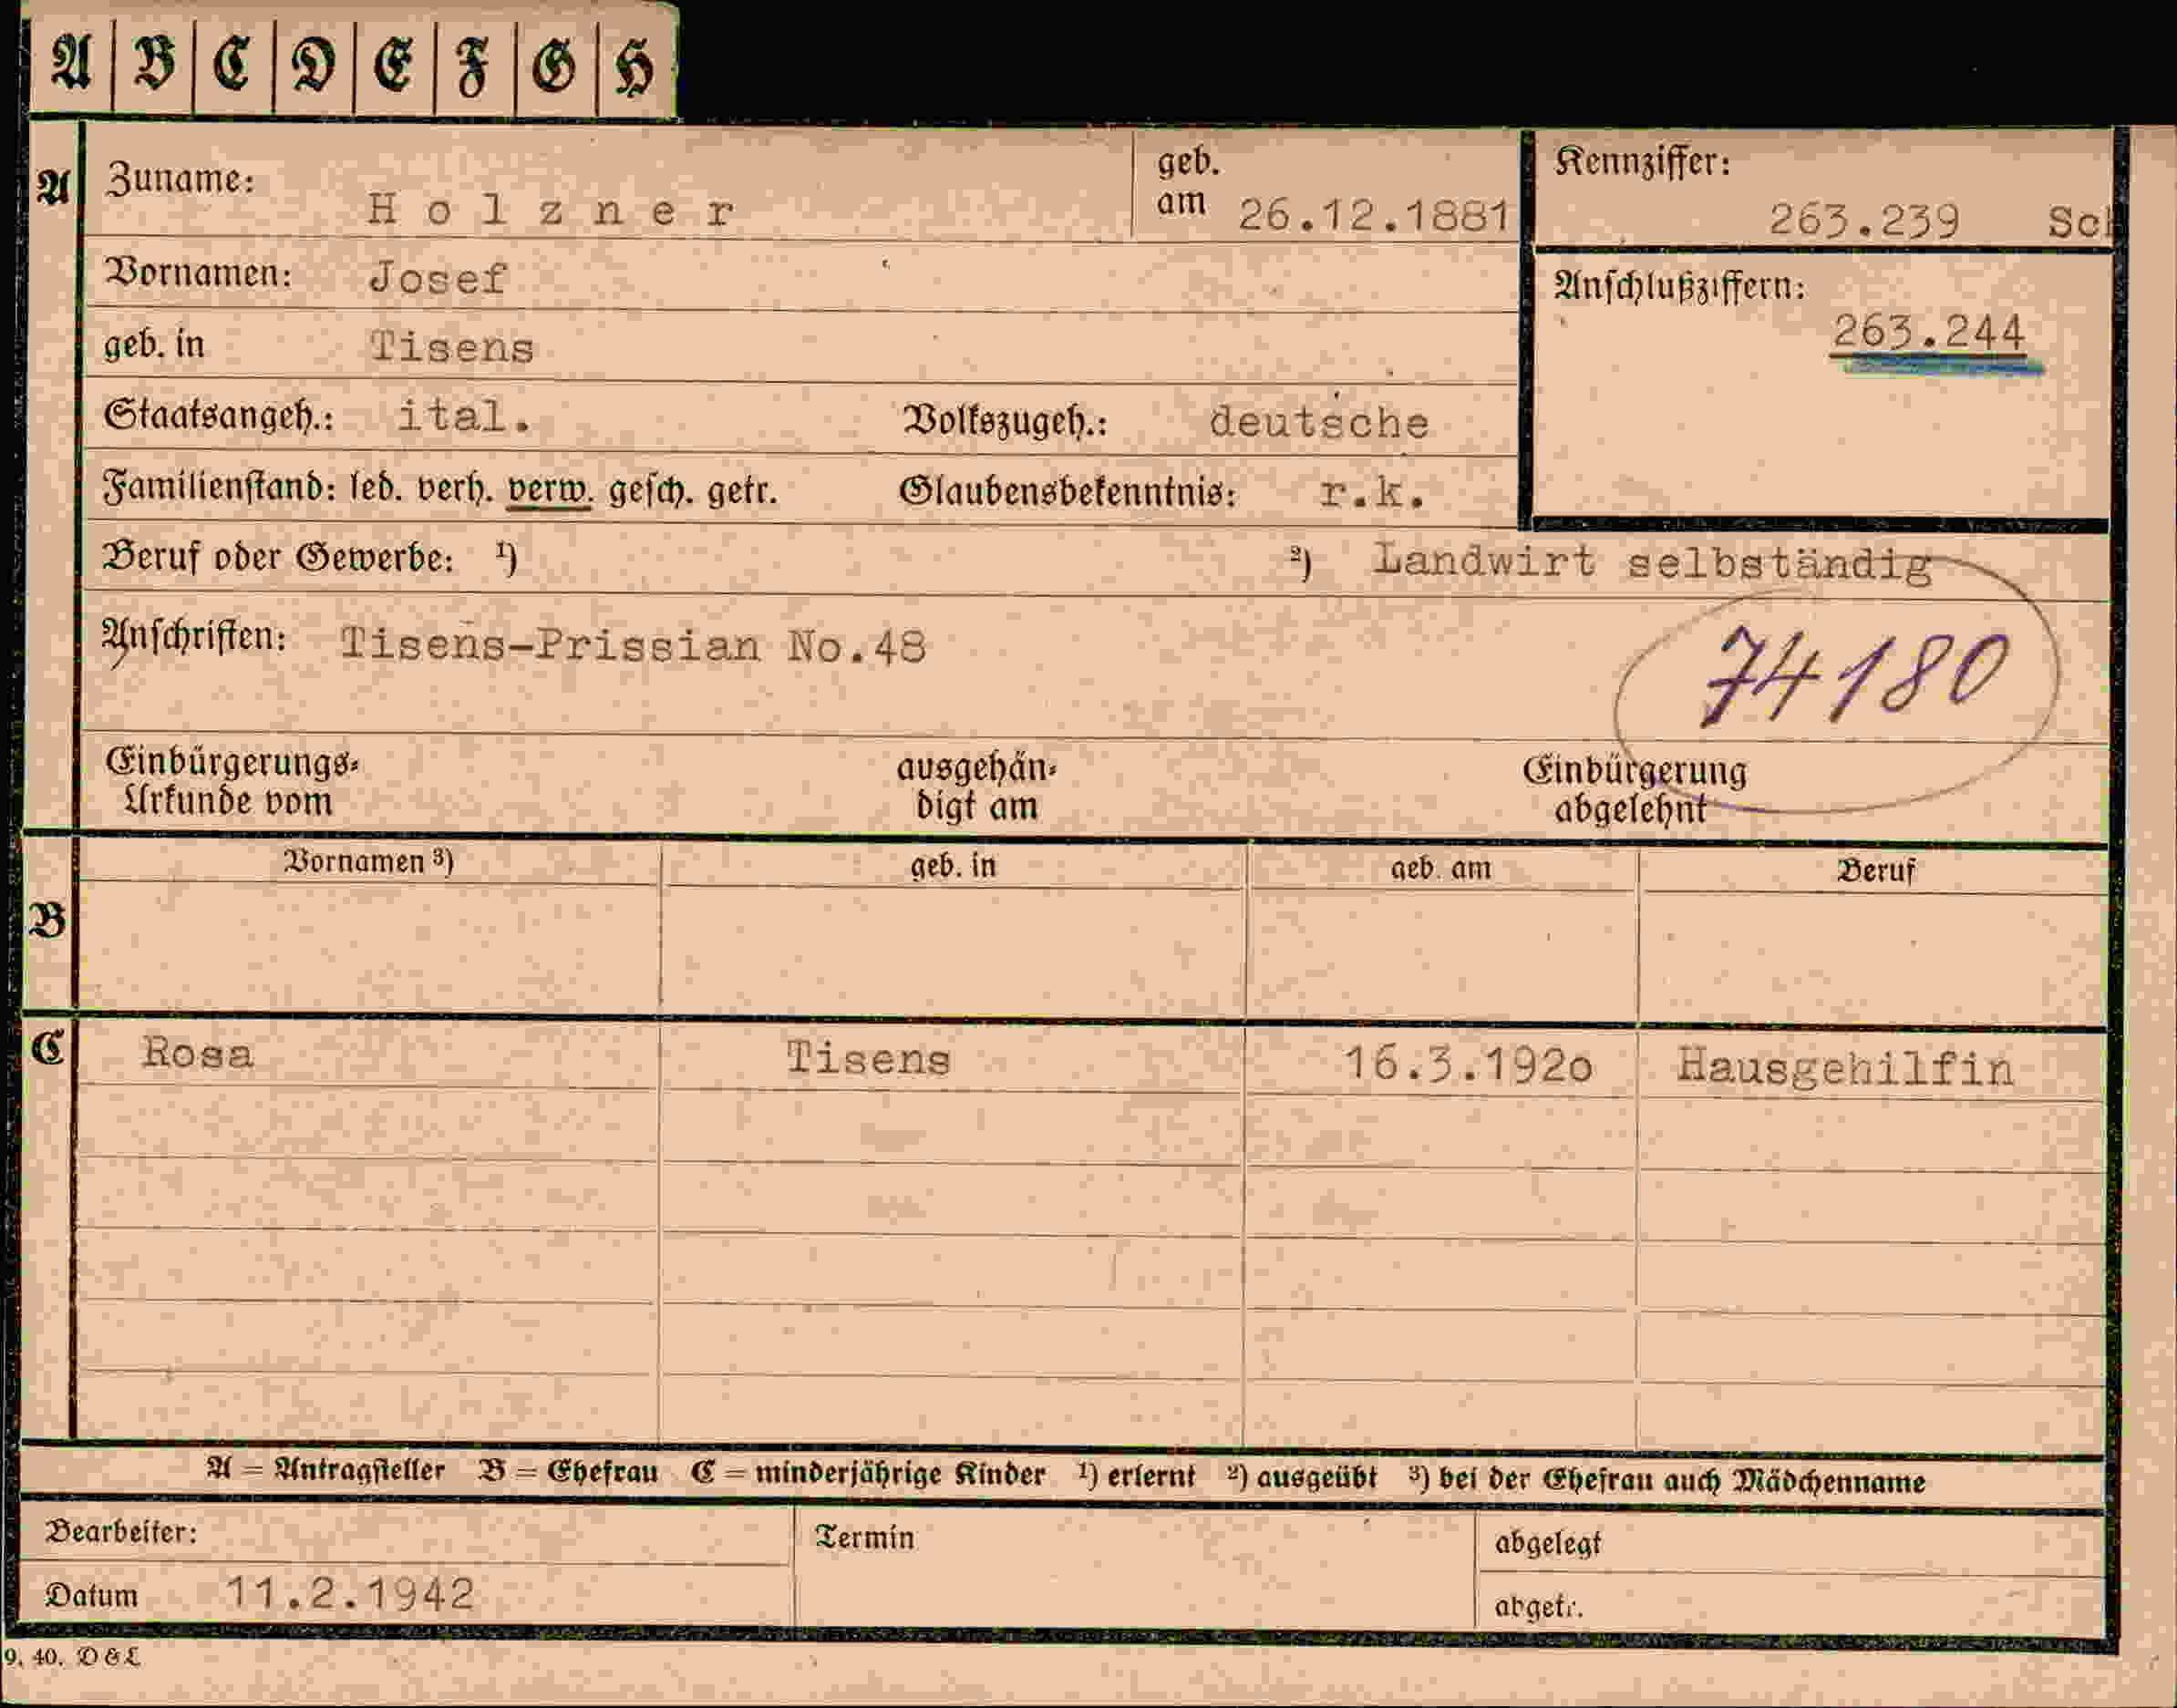 A B C D E F G H
A Zuname: Holzner geb. am 26.12.1881 Kennziffer: 263.239
Vornamen: Josef
Anschlußziffern: 263.244
geb. in Tisens
Staatsangeh.: ital. Volkszugeh.: deutsche
Familienstand: led. verh. verw. gesch. getr. Glaubensbekenntnis: r.k.
Beruf oder Gewerbe: 1) 2) Landwirt selbständig
Anschriften: Tisens-Prissian No.48
74180
Einbürgerungs- ausgehän- Einbürgerung
Urkunde vom digt am abgelehnt
Vornamen 3) geb. in geb. am Beruf
B
C Rosa Tisens 16.3.192o Hausgehilfin
A = Antragsteller B = Ehefrau C = minderjährige Kinder 1) erlernt 2) ausgeübt 3) bei der Ehefrau auch Mädchenname
Bearbeiter: Termin abgelegt
Datum 11.2.1942 abgetr.
9. 40. D & L